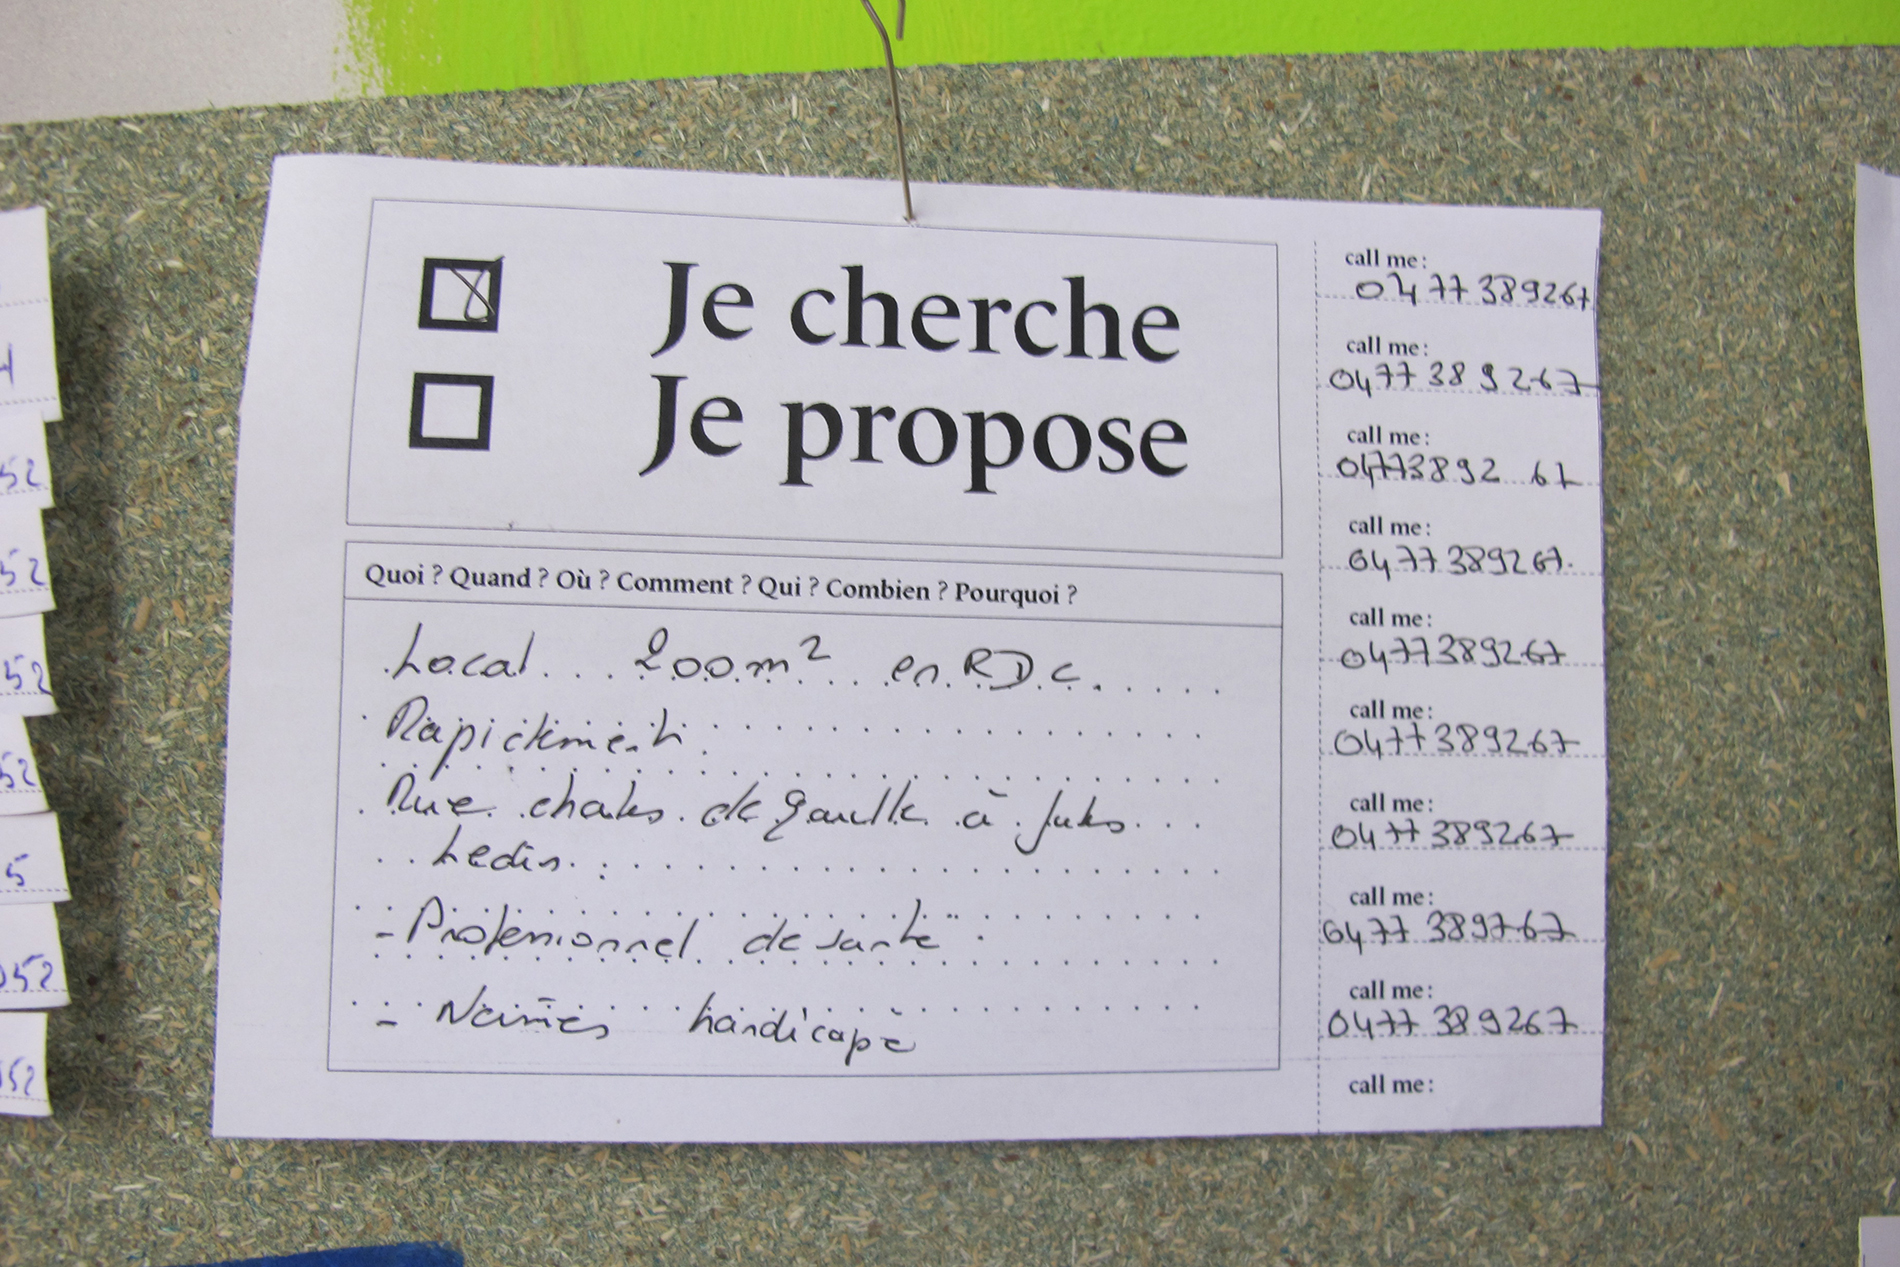 Je cherche
Je propose
Quoi ? Quand ? Où ? Comment ? Qui ? Combien ? Pourquoi ?
Local 200m² en RDC.
Rapidement.
Rue chales de gaulle à
- Professionnel de sante
- handicapé
call me :
0477389267
call me :
0477 389267
call me :
04773892 67
call me :
0477389267.
call me :
0477389267
call me :
0477389267
call me :
0477389267
call me :
0477 389767
call me :
0477 389267
call me :
52
52
52
52
5
052
52